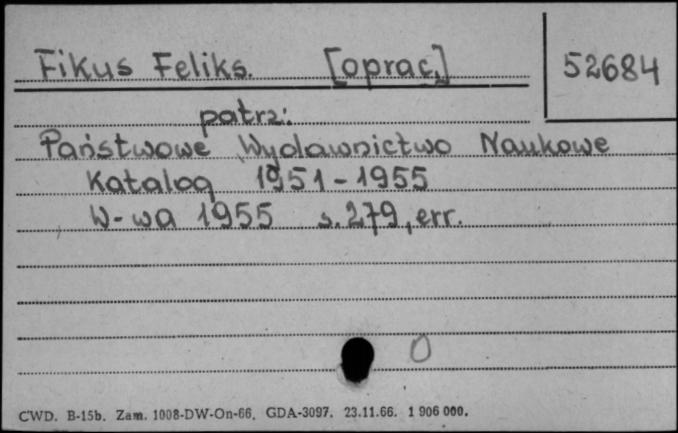 Fikus Feliks. [oprac.] 52684
patrz:
Państwowe Wydawnictwo Naukowe
Katalog 1951-1955
W-wa 1955 s. 279, err.
0
CWD. B-15b. Zam. 1008-DW-On-66. GDA-3097. 23.11.66. 1 906 000.